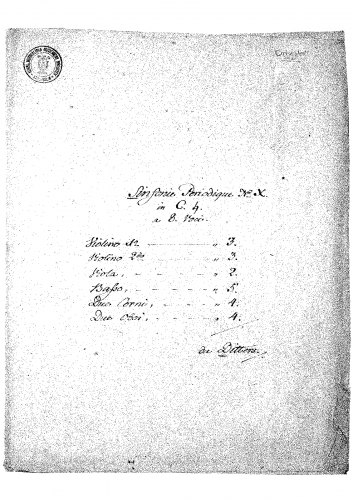 Sinfonie Periodique No X.
in C. h.
a 8. Voci.
Violino 1mo " 3.
Violino 2do " 3.
Viola, " 2.
Basso, " 5.
Due Corni, " 4.
Due Oboi, " 4.
da Ditters.